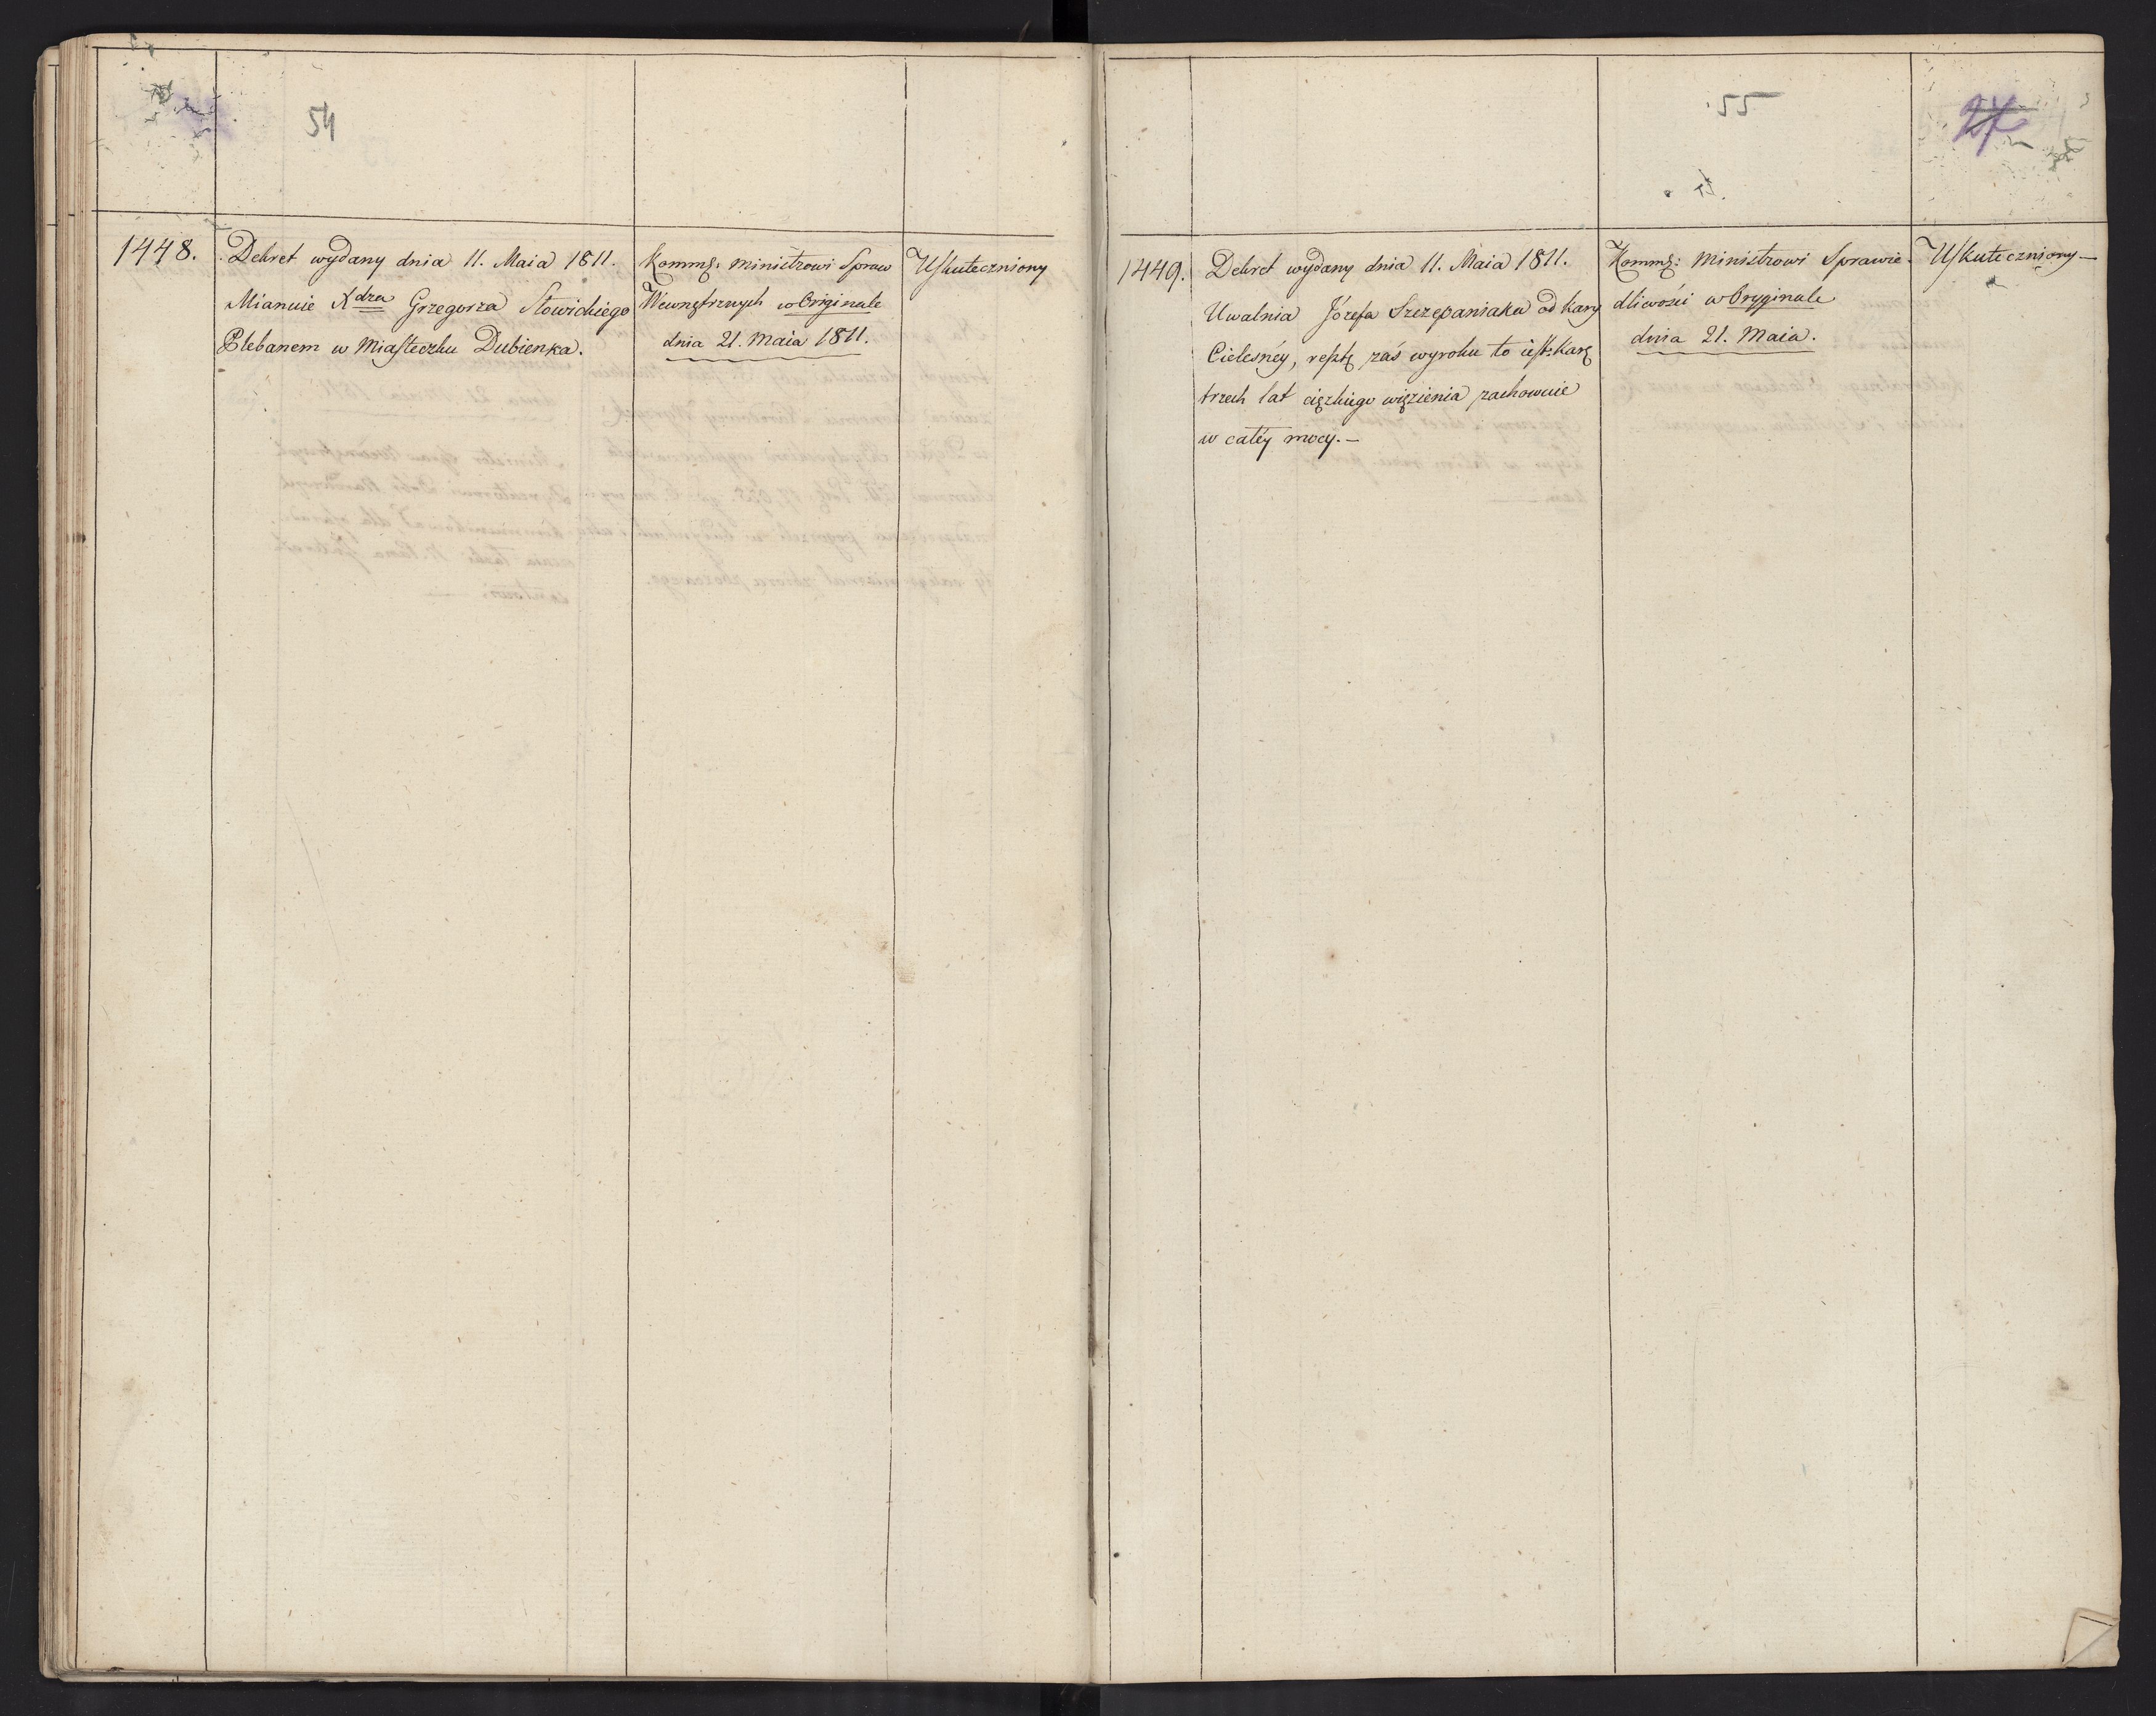 54
1448.
Dekret wydany dnia 11. Maia 1811.
Mianuie Xdza Grzegorza Słowickiego
Plebanem w Miasteczku Dubienka.
Kommę: Ministrowi Spraw
Wewnętrznych w Originale
dnia 21. Maia 1811.
Uskuteczniony
55
27
1449.
Dekret wydany dnia 11. Maia 1811.
Uwalnia Józefa Szczepaniaka od kary
Cielesnéy, resztę zaś wyroku to iest: karę
trzech lat cięzkiego więzienia zachowuie
w całéy mocy.—
Kommę: Ministrowi Sprawie-
dliwości w Oryginale
dnia 21. Maia.
Uskuteczniony—